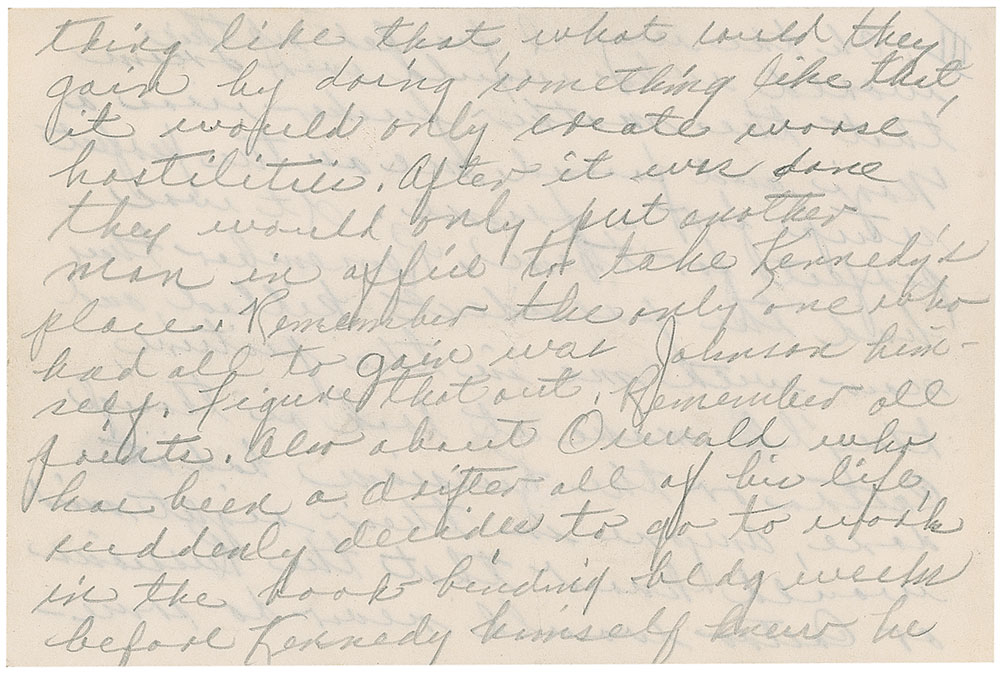 thing like that, what could they
gain by doing something like that,
it would only create worse
hostilities. After it was done
they would only put another
man in office to take Kennedy's
place. Remember the only one who
had all to gain was Johnson him-
self. Figure that out. Remember all
points. Also about Oswald who
has been a drifter all of his life,
suddenly decides to go to work
in the book-binding bldg weeks
before Kennedy himself knew he